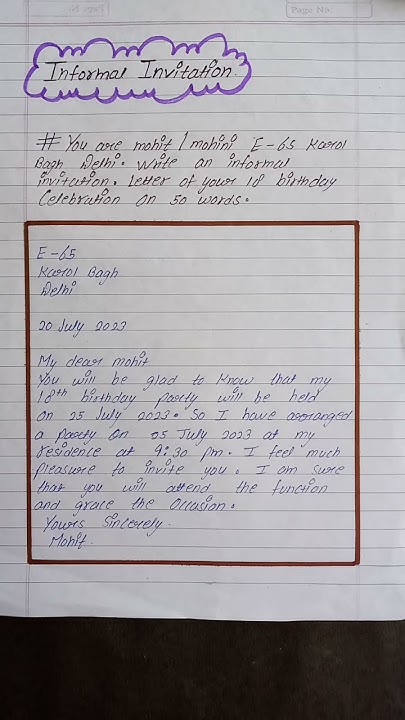 Page No.
Informal Invitation.
# You are mohit / mohini E-65 Karol
Bagh Delhi. Write an informal
invitation. Letter of your 18 birthday
Celebration on 50 words.
E-65
Karol Bagh
Delhi
20 July 2023
My dear mohit
You will be glad to know that my
18th birthday party will be held
on 25 July 2023. So I have arranged
a party on 05 July 2023 at my
residence at 9:30 pm. I feel much
pleasure to invite you. I am sure
that you will attend the function
and grace the Occasion.
Yours Sincerely.
Mohit.